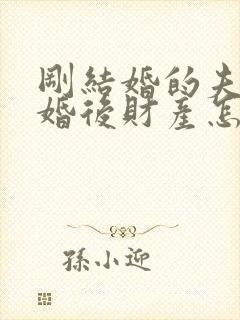 剛結婚的夫
婚後財產怎
孫小迎